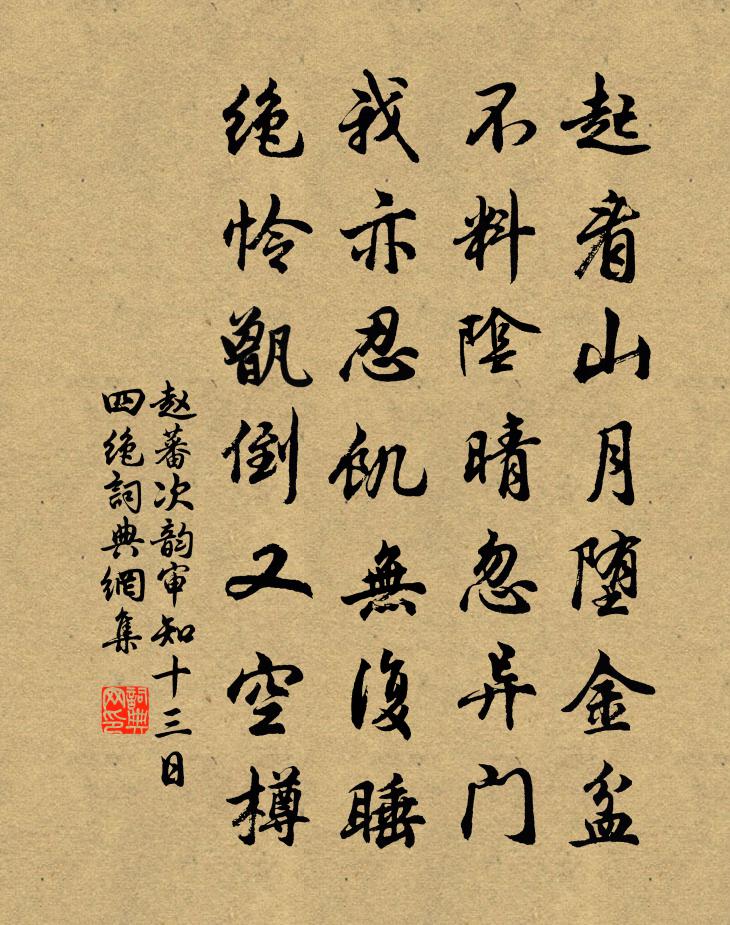 起看山月堕金盆
不料陰晴忽异门
我亦忍飢無復睡
绝怜甑倒又空樽
赵蕃次韵审知十三日
四绝詞典網集
詞典网印